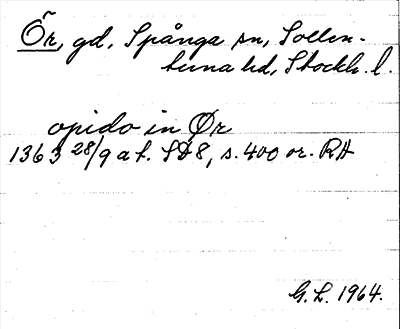 Ör, gd, Spånga sn, Sollen-
tuna hd, Stockh. l.
opido in Ør
1363 28/9 af. SD8, s. 400 or. RA
G. L. 1964.